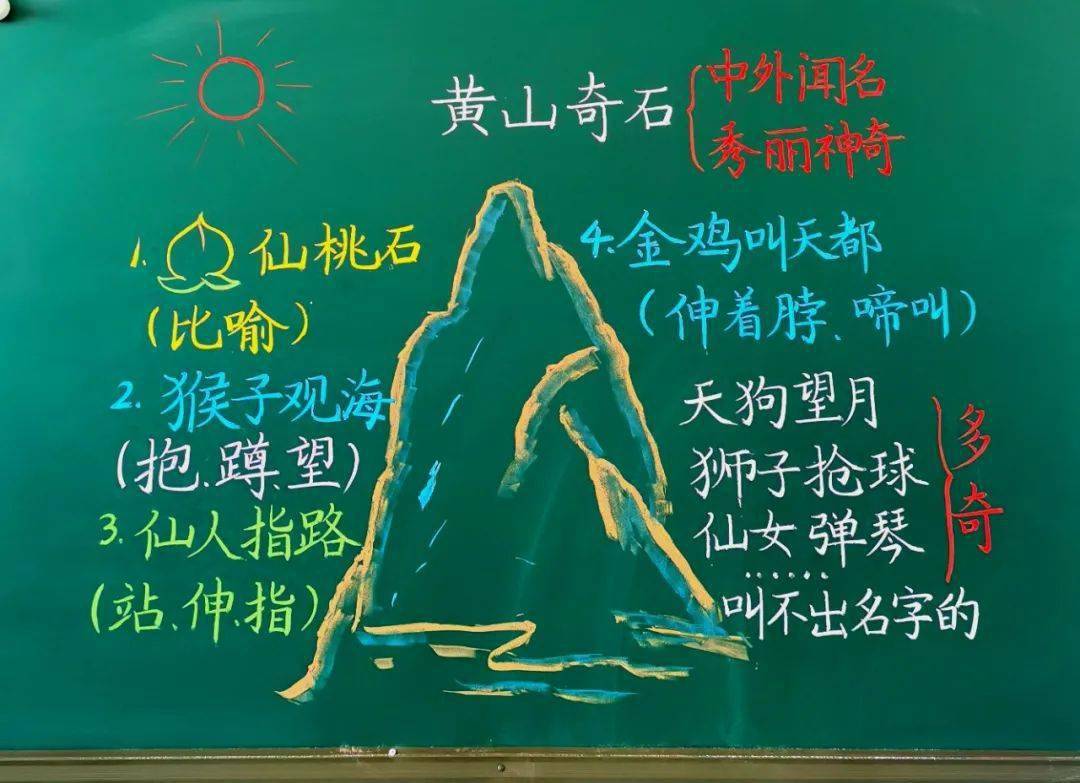 黄山奇石
中外闻名
秀丽神奇
1. 仙桃石
(比喻)
2. 猴子观海
(抱、蹲、望)
3. 仙人指路
(站、伸、指)
4. 金鸡叫天都
(伸着脖、啼叫)
天狗望月
狮子抢球
仙女弹琴
……
叫不出名字的
多奇